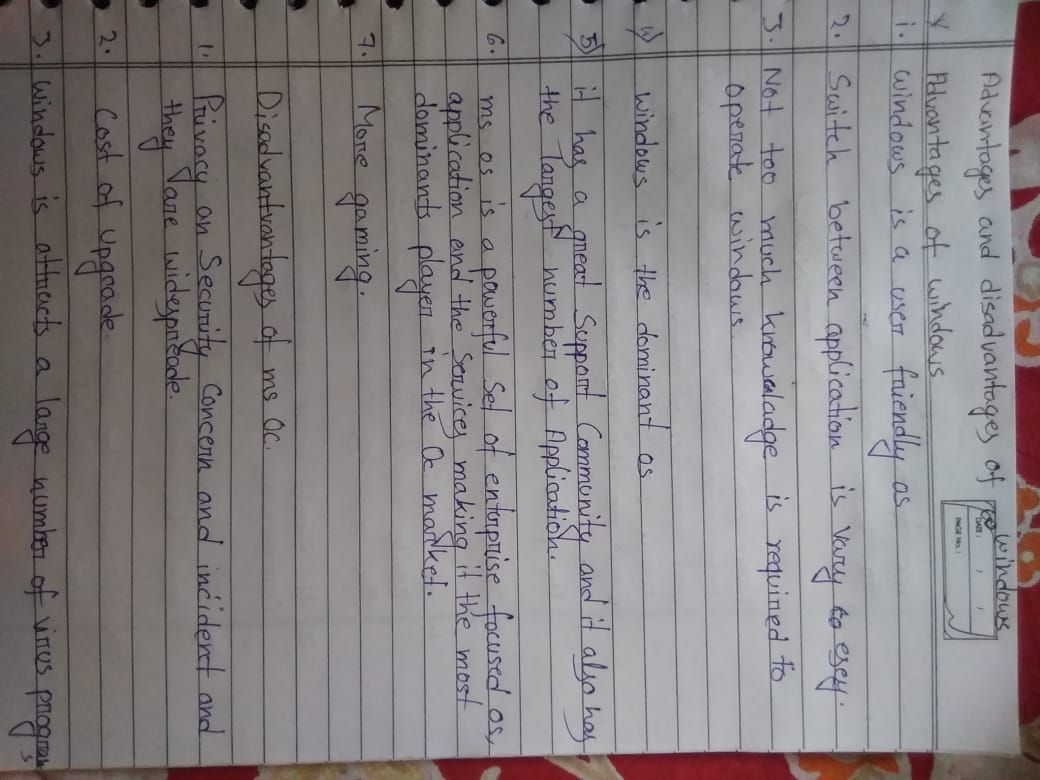 Advantages and disadvantages of windows
DATE: / /
PAGE NO.:
Advantages of windows
1. windows is a user friendly os
2. Switch between application is vary esey.
3. Not too much knowladge is required to
operate windows
4) windows is the dominant os
5) it has a great Support Community and it also has
the largest number of Application.
6. ms os is a powerful set of enterprise focused os,
application and the services making it the most
dominants player in the Oc market.
7. More gaming.
Disadvantvantages of ms Oc.
1. Privacy an Security Concern and incident and
they are widespreade.
2. Cost of upgrade.
3. windows is attracts a large number of virus progrms